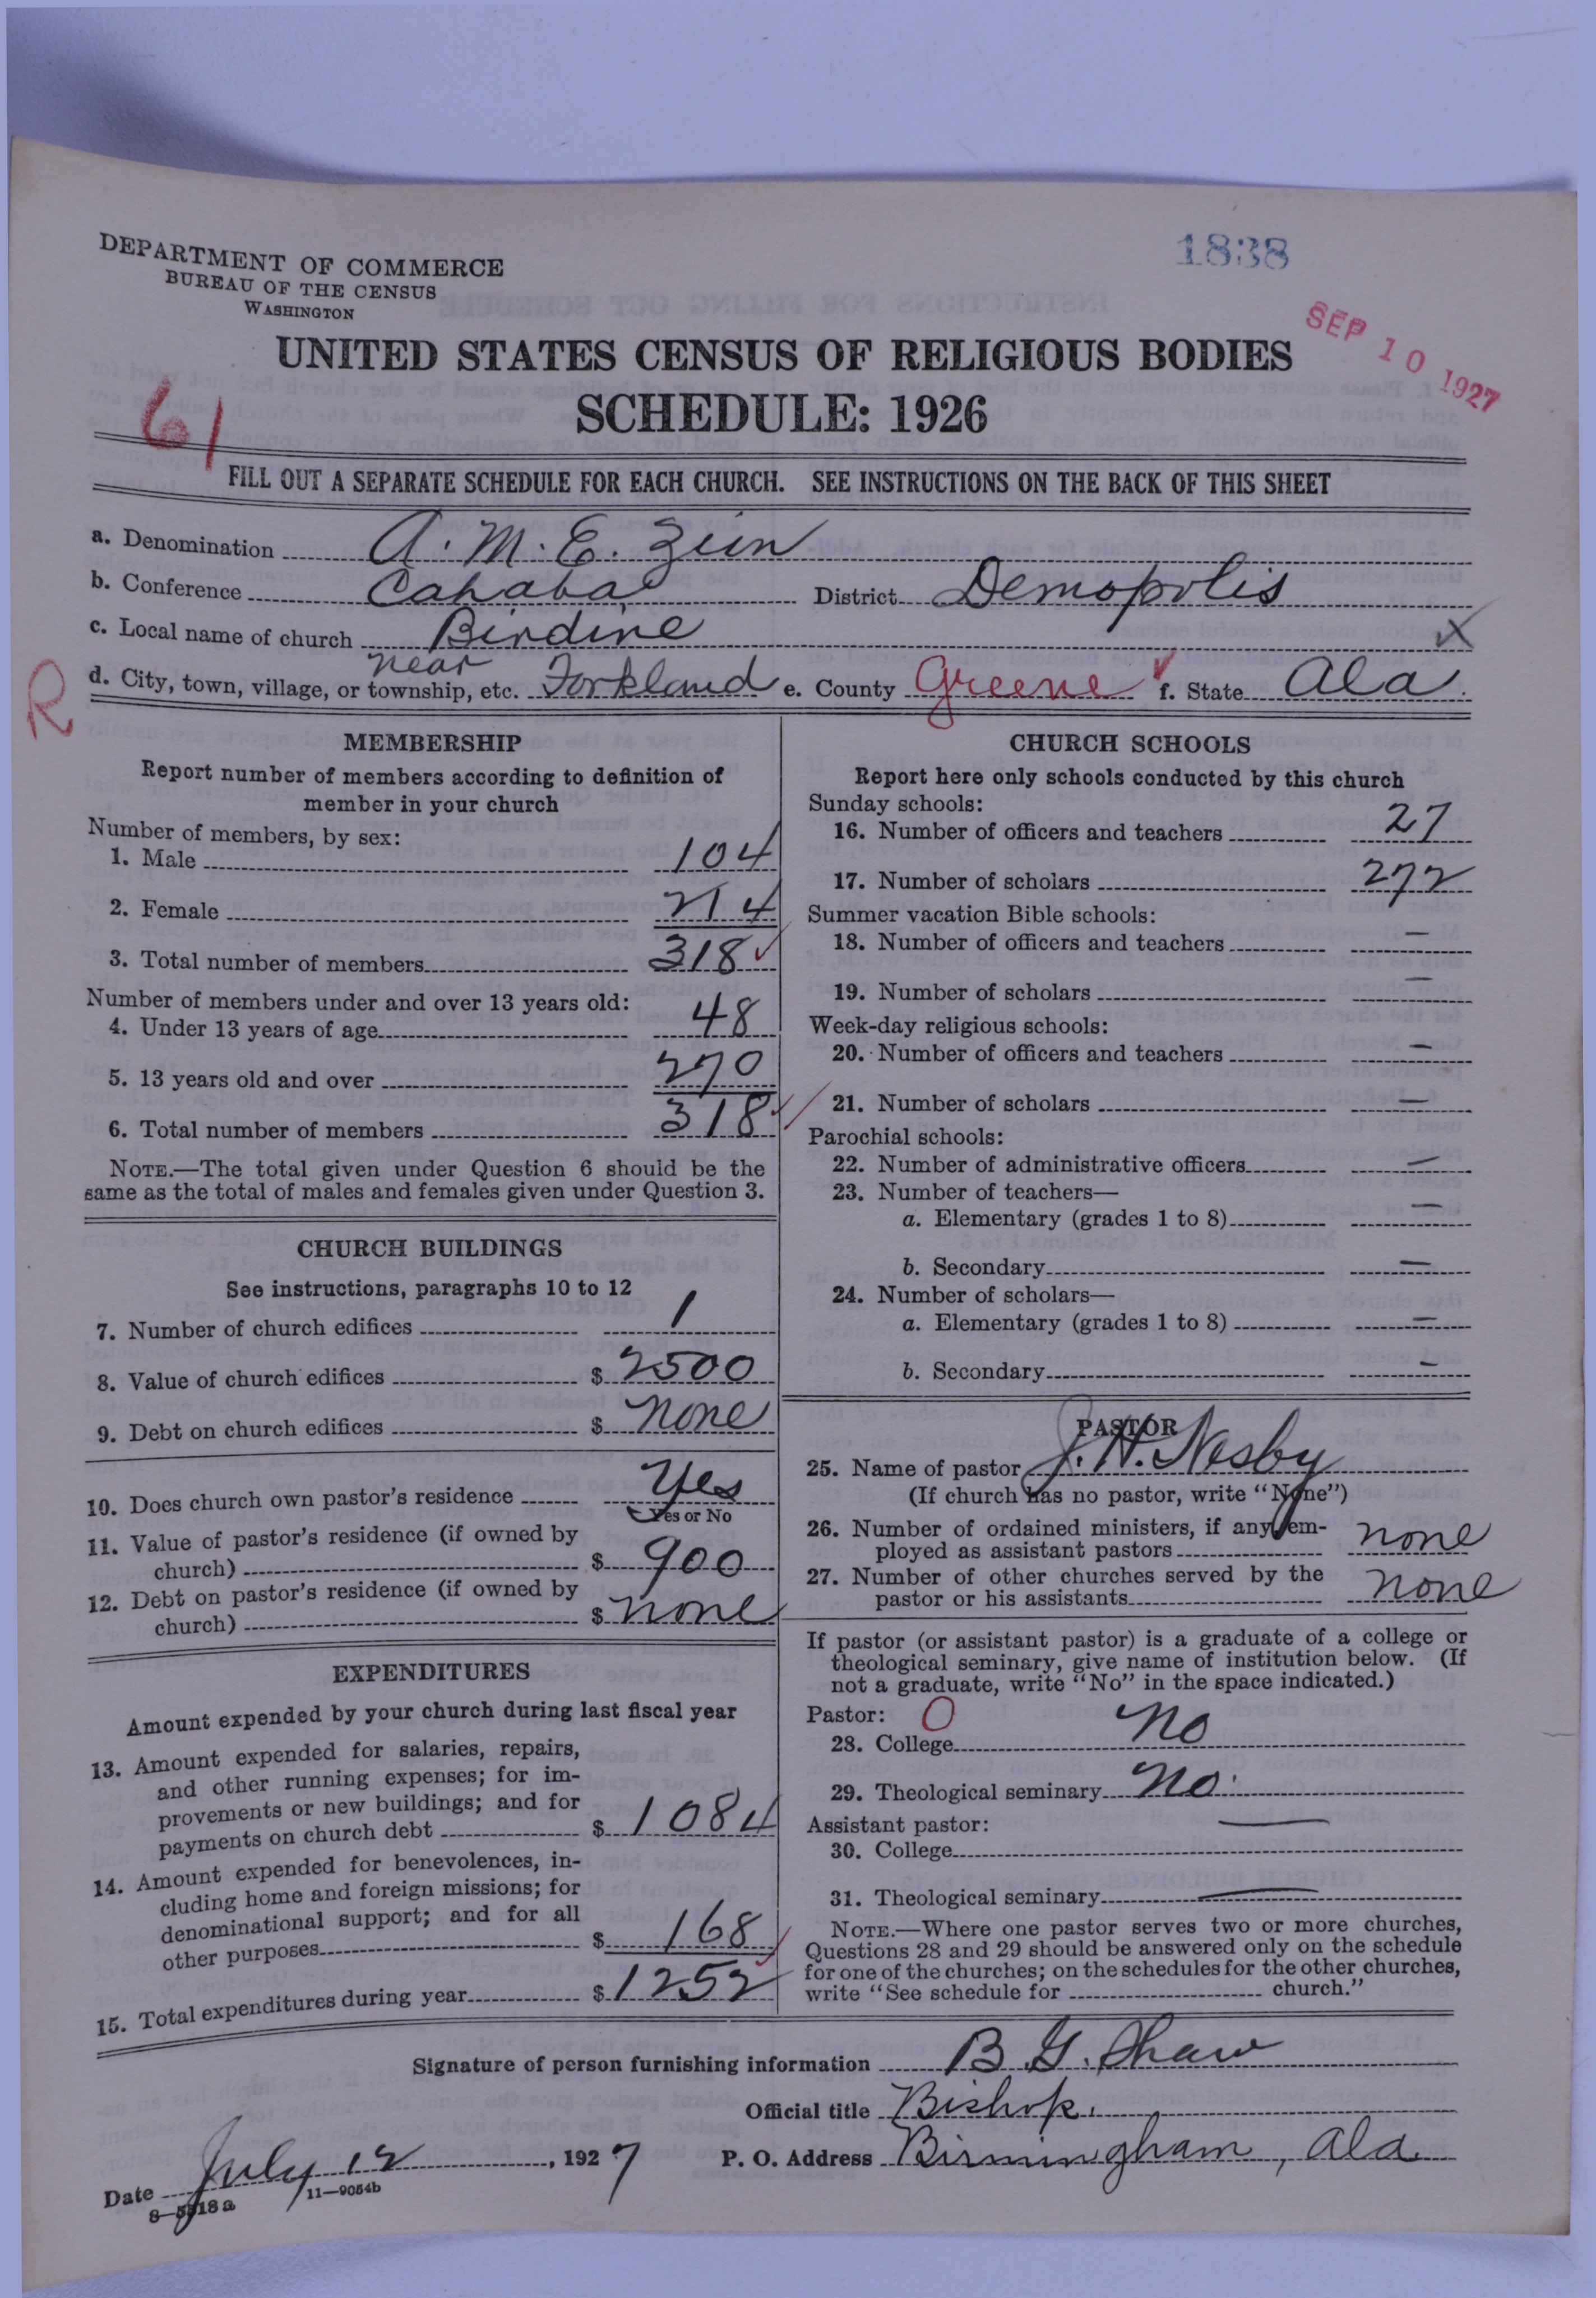 DEPARTMENT OF COMMERCE
BUREAU OF THE CENSUS
WASHINGTON
1838
SEP 10 1927
UNITED STATES CENSUS OF RELIGIOUS BODIES
SCHEDULE: 1926
61
FILL OUT A SEPARATE SCHEDULE FOR EACH CHURCH. SEE INSTRUCTIONS ON THE BACK OF THIS SHEET
a. Denomination A. M. E. Zion
b. Conference Cahaba District Demopolis
c. Local name of church Birdine X
R
d. City, town, village, or township, etc. near Forkland e. County Greene f. State Ala.
MEMBERSHIP
Report number of members according to definition of
member in your church
Number of members, by sex:
1. Male 104
2. Female 214
3. Total number of members 318
Number of members under and over 13 years old:
4. Under 13 years of age 48
5. 13 years old and over 270
6. Total number of members 318
NOTE.—The total given under Question 6 should be the
same as the total of males and females given under Question 3.
CHURCH BUILDINGS
See instructions, paragraphs 10 to 12
7. Number of church edifices 1
8. Value of church edifices $ 2500
9. Debt on church edifices $ none
10. Does church own pastor's residence Yes
Yes or No
11. Value of pastor's residence (if owned by
church) $ 900
12. Debt on pastor's residence (if owned by
church) $ none
EXPENDITURES
Amount expended by your church during last fiscal year
13. Amount expended for salaries, repairs,
and other running expenses; for im-
provements or new buildings; and for
payments on church debt $ 1084
14. Amount expended for benevolences, in-
cluding home and foreign missions; for
denominational support; and for all
other purposes $ 168
15. Total expenditures during year $ 1252
CHURCH SCHOOLS
Report here only schools conducted by this church
Sunday schools:
16. Number of officers and teachers 27
17. Number of scholars 272
Summer vacation Bible schools:
18. Number of officers and teachers —
19. Number of scholars —
Week-day religious schools:
20. Number of officers and teachers —
21. Number of scholars —
Parochial schools:
22. Number of administrative officers —
23. Number of teachers—
a. Elementary (grades 1 to 8) —
b. Secondary —
24. Number of scholars—
a. Elementary (grades 1 to 8) —
b. Secondary —
PASTOR
25. Name of pastor J. H. Nesby
(If church has no pastor, write "None")
26. Number of ordained ministers, if any em-
ployed as assistant pastors none
27. Number of other churches served by the
pastor or his assistants none
If pastor (or assistant pastor) is a graduate of a college or
theological seminary, give name of institution below. (If
not a graduate, write "No" in the space indicated.)
Pastor: O
28. College No
29. Theological seminary No.
Assistant pastor:
30. College —
31. Theological seminary —
NOTE.—Where one pastor serves two or more churches,
Questions 28 and 29 should be answered only on the schedule
for one of the churches; on the schedules for the other churches,
write "See schedule for church."
Signature of person furnishing information B. G. Shaw
Official title Bishop.
Date July 12, 1927 P. O. Address Birmingham, Ala.
8—5318a 11—9054b